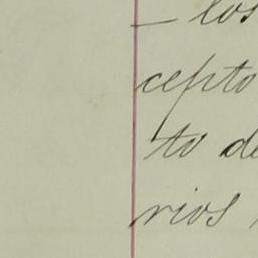 — los
cepto
to de
rios